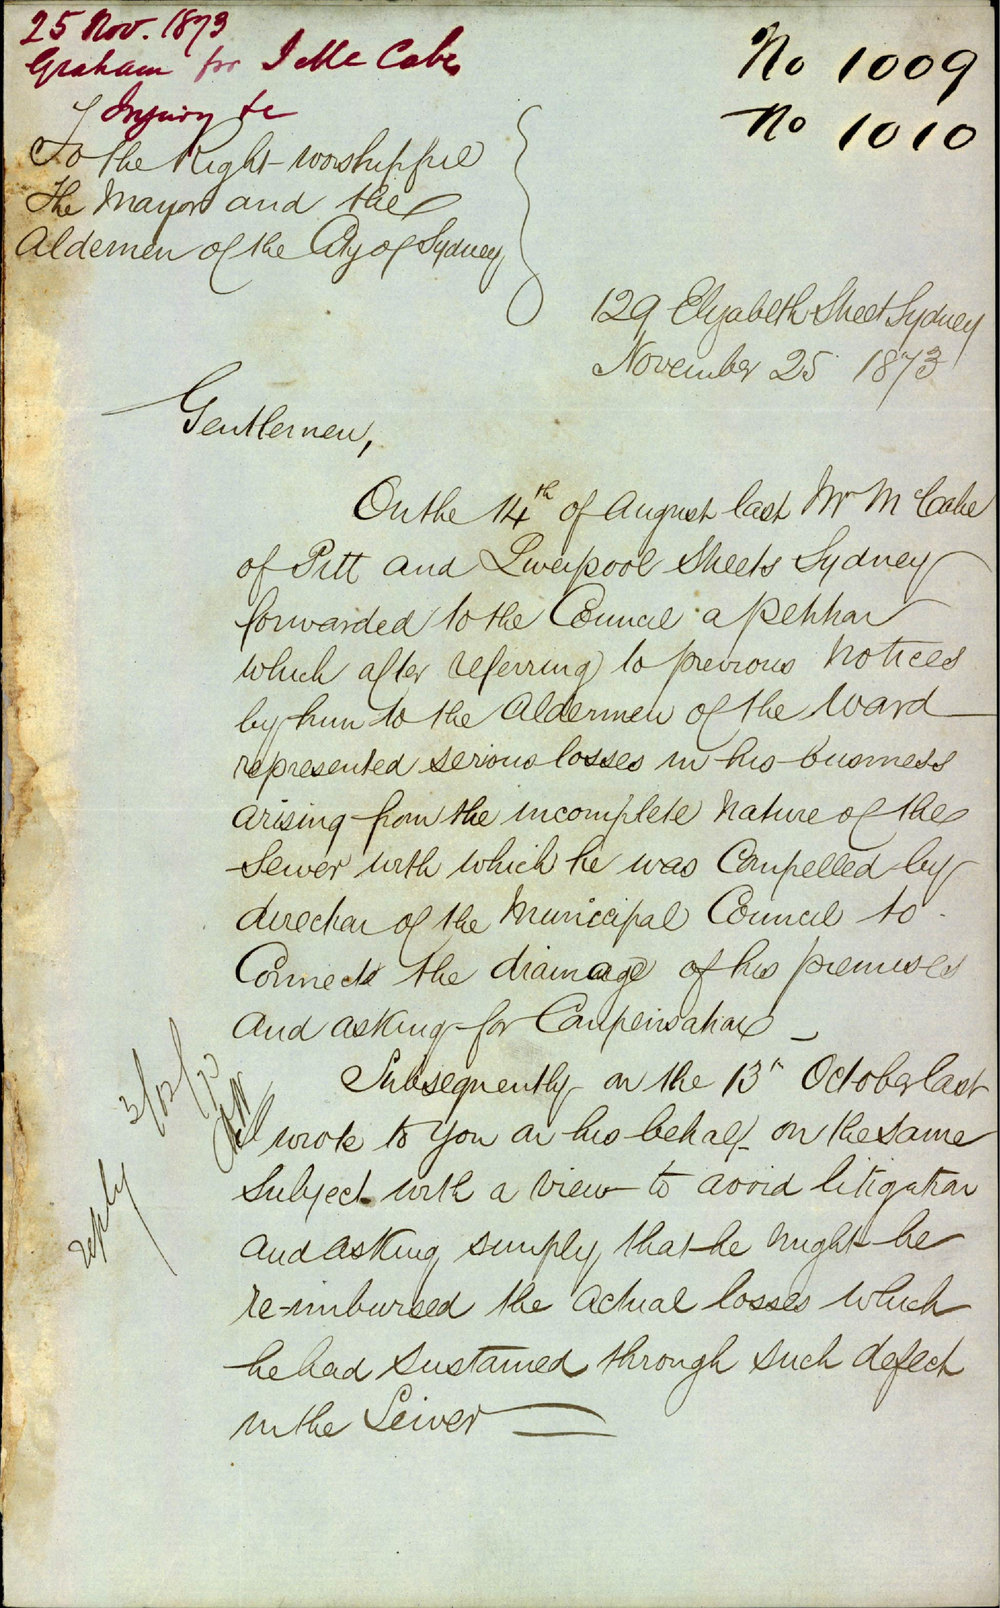 25 Nov. 1873
Graham for J Mc Cabe
Injury &c
No 1009
No 1010
To the Right worshipful
The Mayor and the
Aldermen of the City of Sydney
129 Elizabeth Street Sydney
November 25 1873
Gentlemen,
On the 14th of August last Mr McCabe
of Pitt and Liverpool Streets Sydney
forwarded to the Council a petition
which after referring to previous notices
by him to the Aldermen of the Ward
represented serious losses in his business
arising from the incomplete nature of the
Sewer with which he was Compelled by
direction of the Municipal Council to
Connect the drainage of his premises
and asking for Compensation
Subsequently on the 13th October last
I wrote to you on his behalf on the same
Subject with a view to avoid litigation
and asking simply that he might be
re-imbursed the actual losses which
he had sustained through such defect
in the Sewer
reply